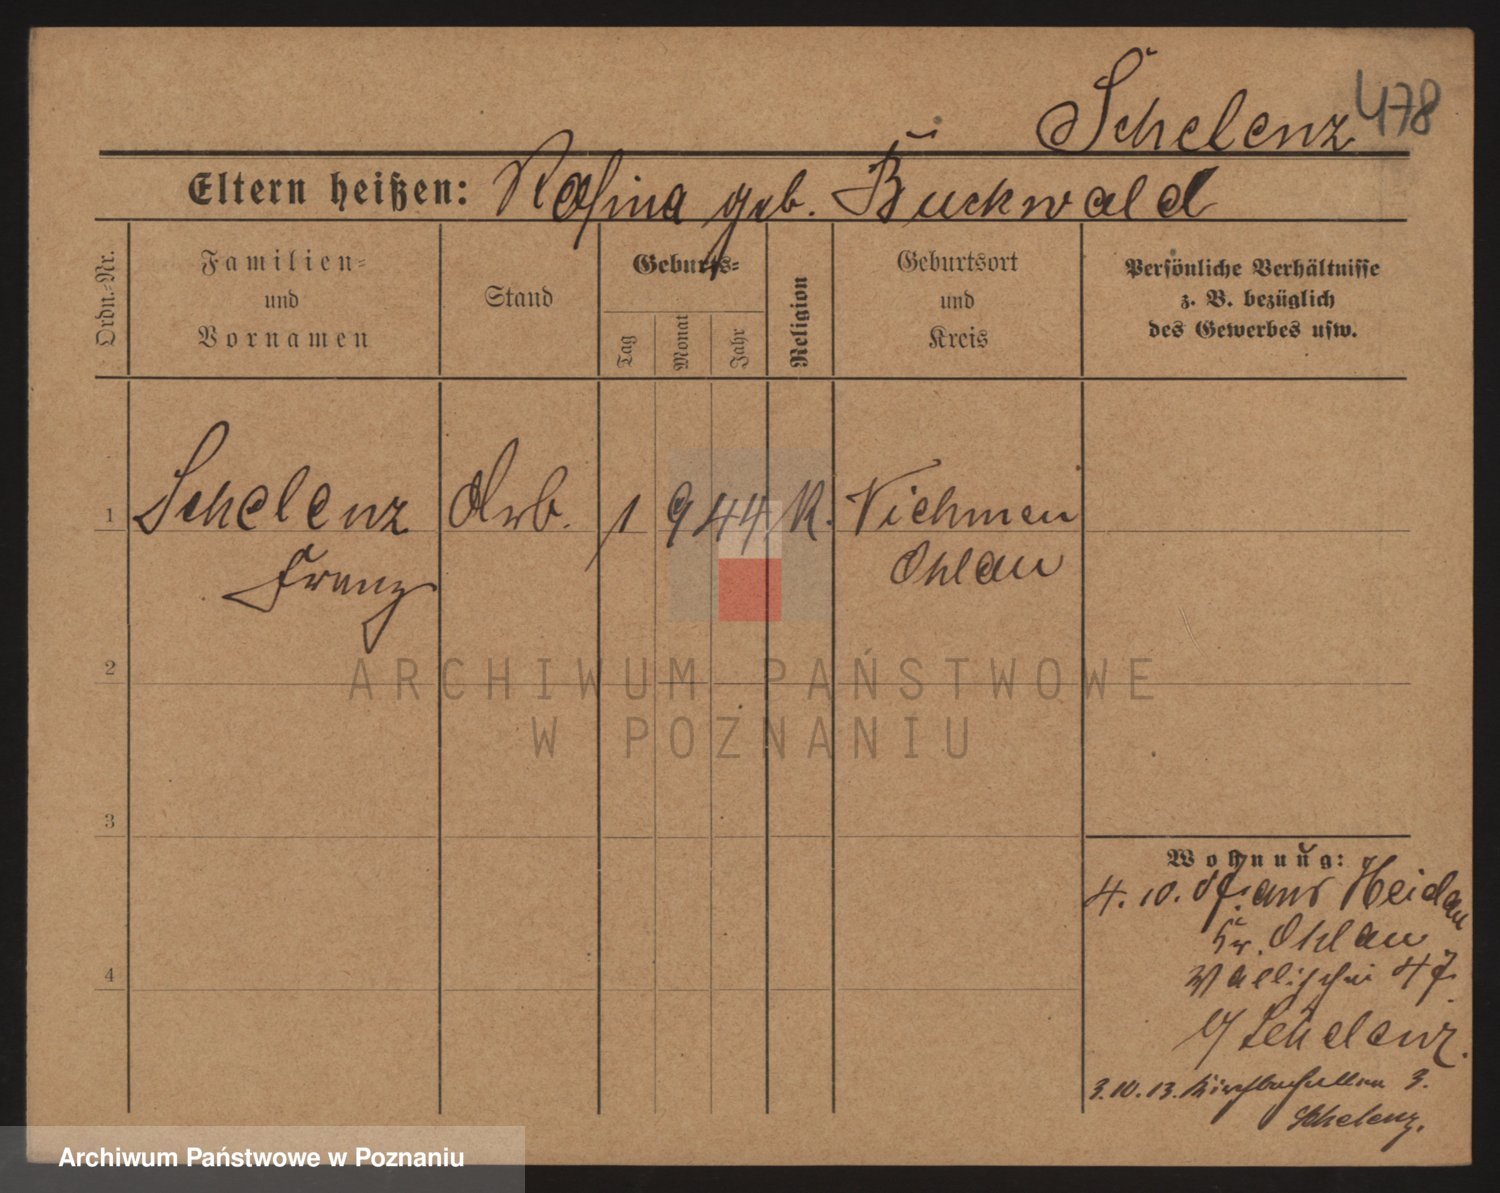 Schelenz 478
Eltern heißen: Rosina geb. Buckwald
Ordn.-Nr.
Familien-
und
Vornamen
Stand
Geburts-
Tag
Monat
Jahr
Religion
Geburtsort
und
Kreis
Persönliche Verhältnisse
z. B. bezüglich
des Gewerbes usw.
1 Schelenz Arb. 1 9 44 K. Vichmen
Franz Ohlau
2
3
4
Wohnung:
4. 10. 07. aus Heidau
Kr. Ohlau
Wallischei 47.
b/ Schelenz.
3. 10. 13. 3.
Schelenz.
ARCHIWUM PAŃSTWOWE
W POZNANIU
Archiwum Państwowe w Poznaniu